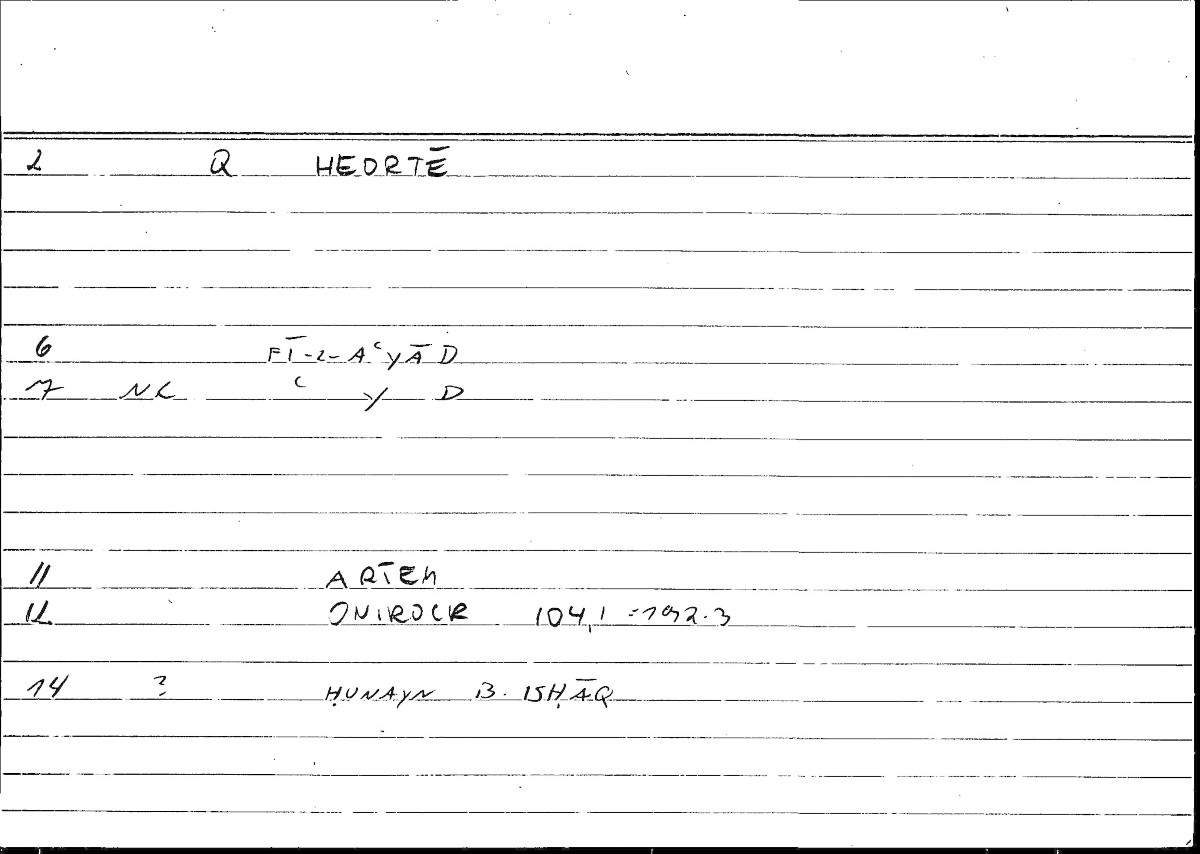 2 Q HEORTĒ
6 FĪ-L-AʿYĀD
7 NC ʿ Y D
11 ARTEM
12 ONIROCR 104,1 = 192.3
14 ? ḤUNAYN B. ISḤĀQ